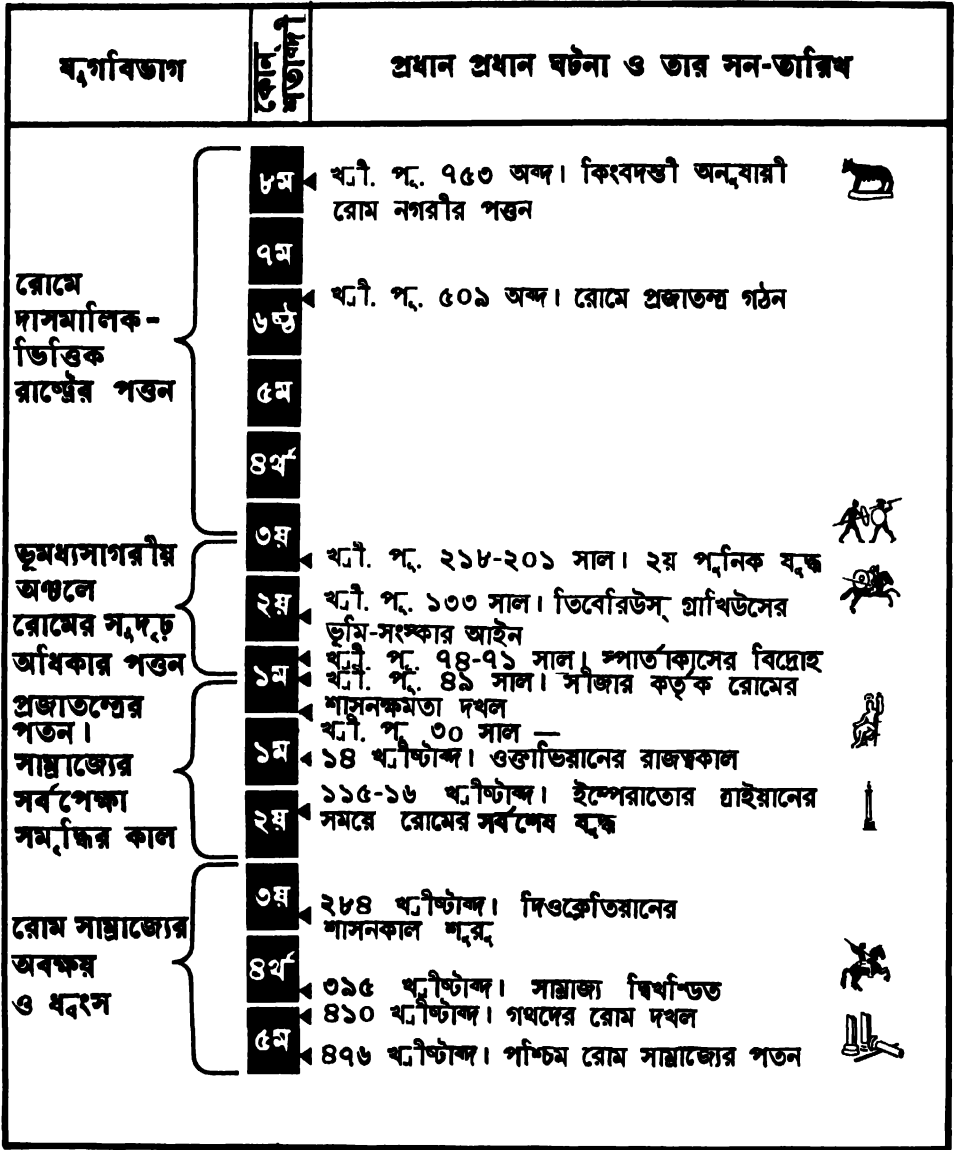 যুগবিভাগ
কোন্ শতাব্দী
প্রধান প্রধান ঘটনা ও তার সন-তারিখ
রোমে
দাসমালিক-
ভিত্তিক
রাষ্ট্রের পত্তন
৮ম
খ্রী. পূ. ৭৫৩ অব্দ। কিংবদন্তী অনুযায়ী
রোম নগরীর পত্তন
৭ম
৬ষ্ঠ
খ্রী. পূ. ৫০৯ অব্দ। রোমে প্রজাতন্ত্র গঠন
৫ম
৪র্থ
৩য়
ভূমধ্যসাগরীয়
অঞ্চলে
রোমের সুদৃঢ়
অধিকার পত্তন
খ্রী. পূ. ২১৮-২০১ সাল। ২য় পুনিক যুদ্ধ
২য়
খ্রী. পূ. ১৩৩ সাল। তিবেরিউস্ গ্রাখিউসের
ভূমি-সংস্কার আইন
১ম
খ্রী. পূ. ৭৪-৭১ সাল। স্পার্তাক্যুসের বিদ্রোহ
খ্রী. পূ. ৪৯ সাল। সীজার কর্তৃক রোমের
শাসনক্ষমতা দখল
প্রজাতন্ত্রের
পতন।
সাম্রাজ্যের
সর্বপেক্ষা
সমৃদ্ধির কাল
খ্রী. পূ. ৩০ সাল —
১ম
১৪ খ্রীষ্টাব্দ। ওক্তাভিয়ানের রাজত্বকাল
২য়
১১৫-১৬ খ্রীষ্টাব্দ। ইম্পেরাতোর ত্রাইয়ানের
সময়ে রোমের সর্বশেষ যুদ্ধ
রোম সাম্রাজ্যের
অবক্ষয়
ও ধ্বংস
৩য়
২৮৪ খ্রীষ্টাব্দ। দিওক্লেতিয়ানের
শাসনকাল শুরু
৪র্থ
৩৯৫ খ্রীষ্টাব্দ। সাম্রাজ্য দ্বিখণ্ডিত
৫ম
৪১০ খ্রীষ্টাব্দ। গথদের রোম দখল
৪৭৬ খ্রীষ্টাব্দ। পশ্চিম রোম সাম্রাজ্যের পতন